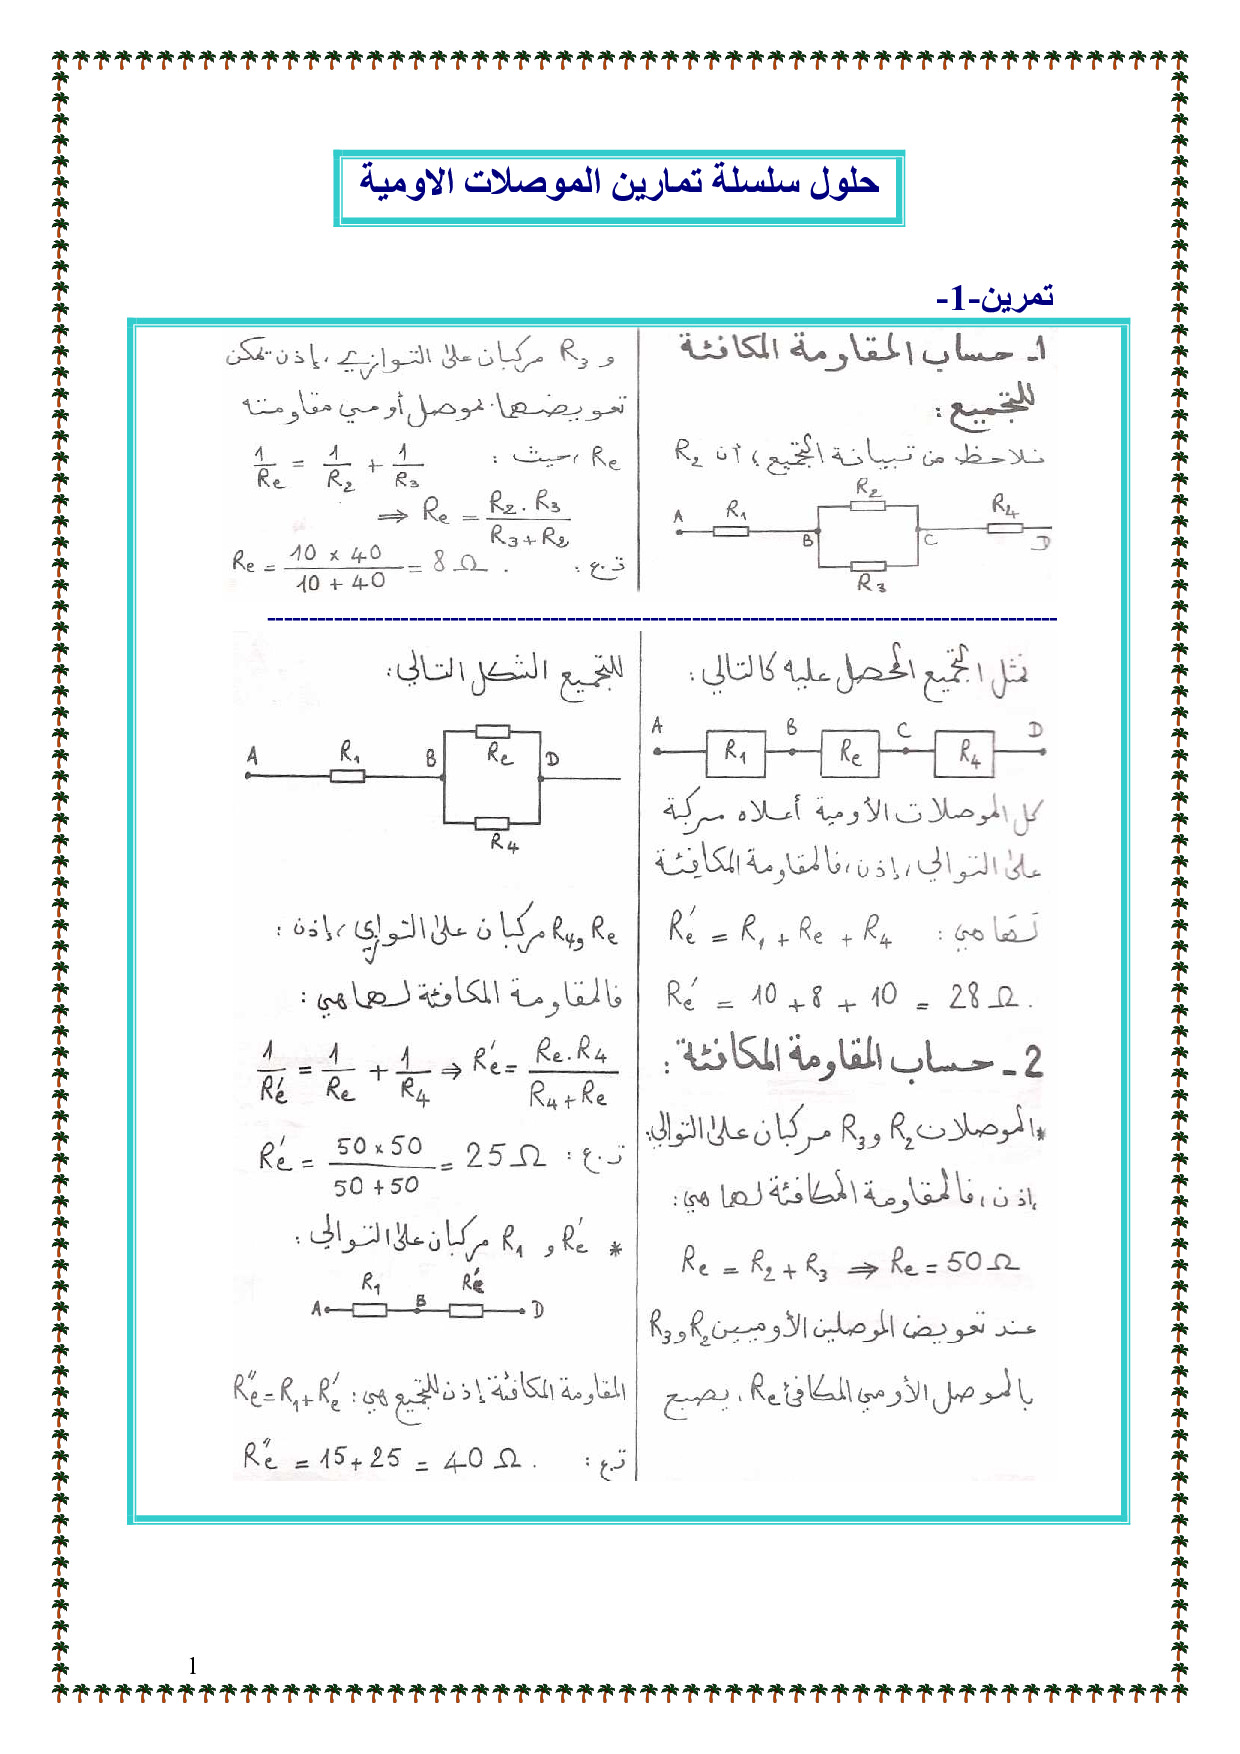 حلول سلسلة تمارين الموصلات الاومية
تمرين-1-
1- حساب المقاومة المكافئة
للتجميع :
نلاحظ من تبيانة التجميع ، أن R₂
A R₁ B R₂ R₃ C R₄ D
و R₃ مركبان على التوازي ، إذن يمكن
تعويضها بموصل أومي مقاومته
Re ، حيث : 1/Re = 1/R₂ + 1/R₃
⇒ Re = R₂ . R₃ / R₃ + R₂
ت.ع : Re = 10 x 40 / 10 + 40 = 8 Ω .
نمثل التجميع المحصل عليه كالتالي :
A R₁ B Re C R₄ D
كل الموصلات الأومية أعلاه مركبة
على التوالي ، إذن ، فالمقاومة المكافئة
لها هي : Re′ = R₁ + Re + R₄
Re′ = 10 + 8 + 10 = 28 Ω .
2 - حساب المقاومة المكافئة :
* الموصلات R₂ و R₃ مركبان على التوالي.
إذن ، فالمقاومة المكافئة لها هي :
Re = R₂ + R₃ ⇒ Re = 50 Ω
عند تعويض الموصلين الأوميين R₂ و R₃
بالموصل الأومي المكافئ Re ، يصبح
للتجميع الشكل التالي :
A R₁ B Re R₄ D
Re و R₄ مركبان على التوازي ، إذن :
فالمقاومة المكافئة لهما هي :
1/Re′ = 1/Re + 1/R₄ ⇒ Re′ = Re . R₄ / R₄ + Re
ت.ع : Re′ = 50 x 50 / 50 + 50 = 25 Ω
* Re′ و R₁ مركبان على التوالي :
A R₁ B Re′ D
المقاومة المكافئة إذن للتجميع هي : Re″ = R₁ + Re′
ت.ع : Re″ = 15 + 25 = 40 Ω .
1